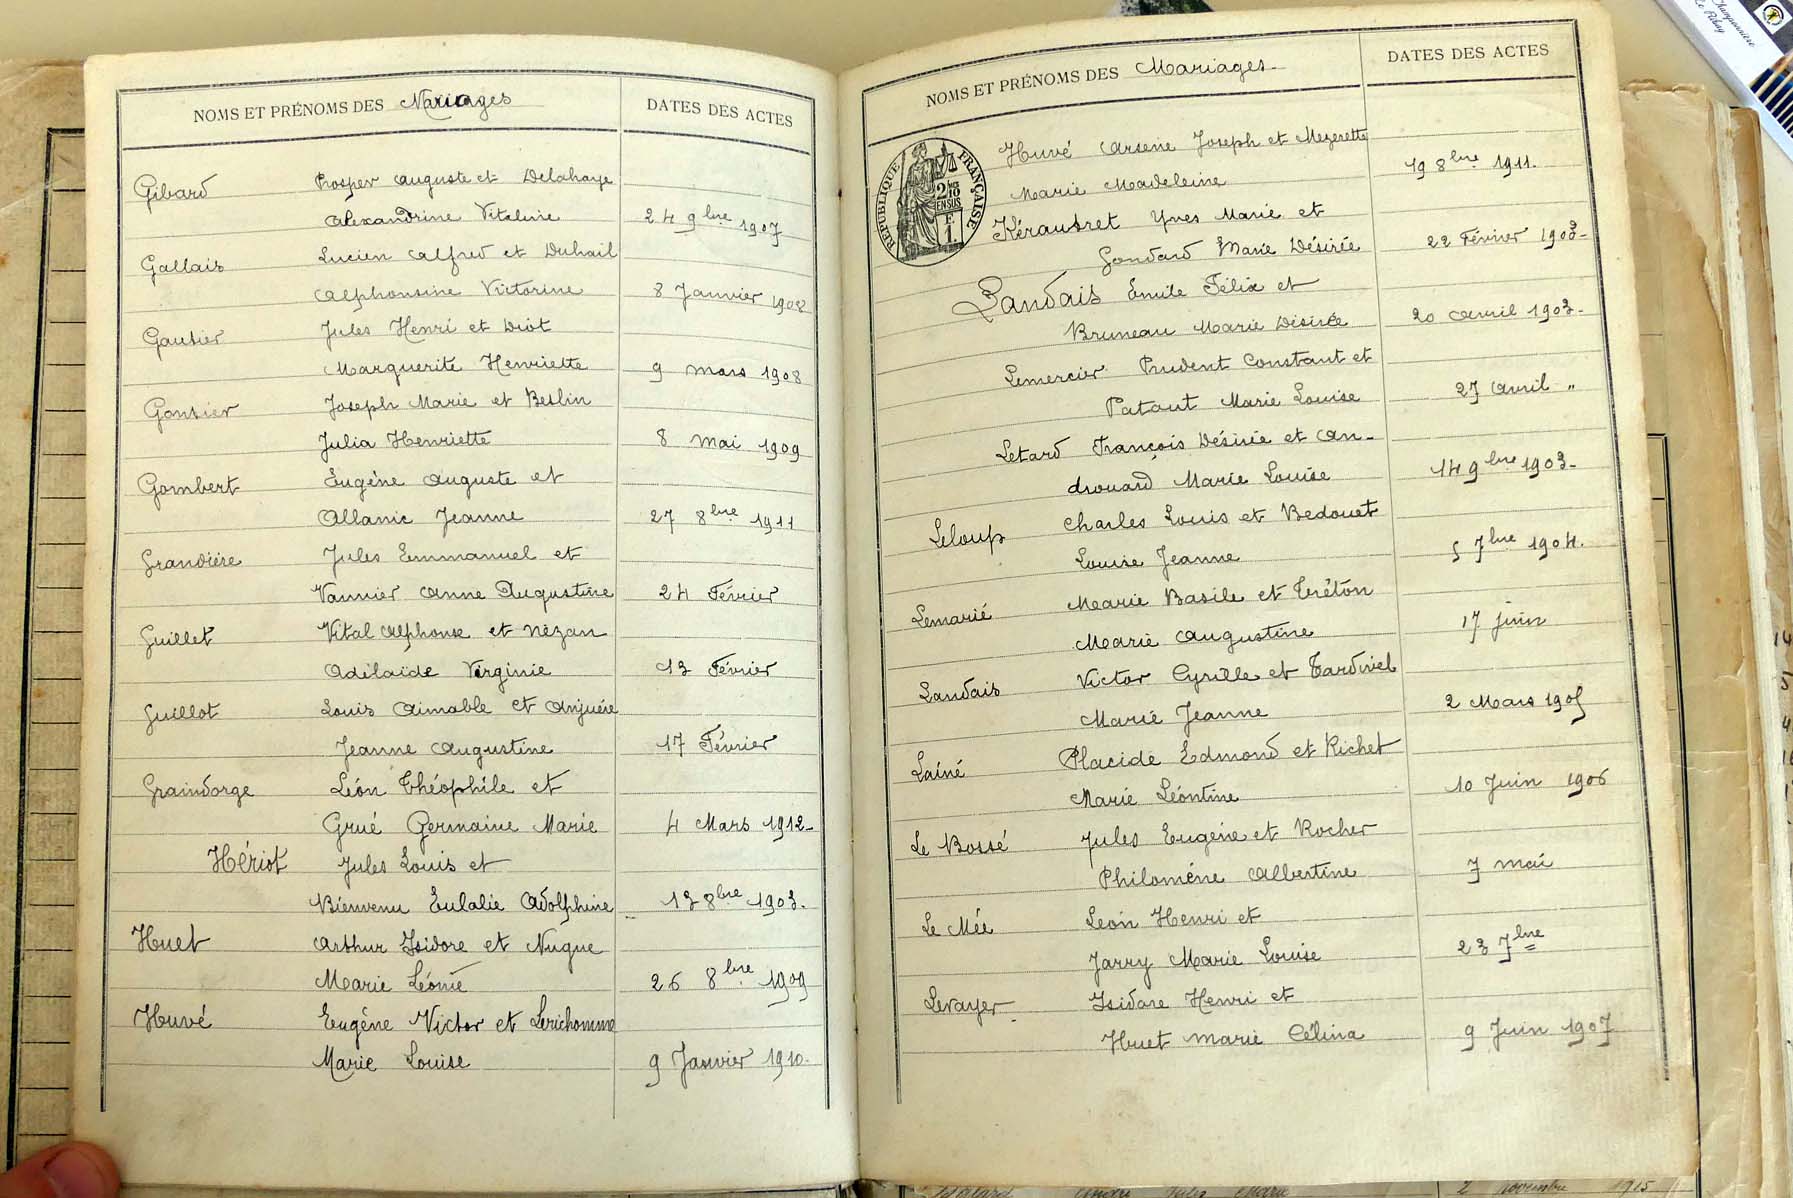 NOMS ET PRÉNOMS DES Mariages
DATES DES ACTES
Gibard Prosper Auguste et Delahaye
Alexandrine Vitaline 24 9bre 1907
Gallais Lucien Alfred et Duhail
Alphonsine Victorine 8 Janvier 1908
Gautier Jules Henri et Diot
Marguerite Henriette 9 mars 1908
Gontier Joseph Marie et Beslin
Julia Henriette 8 mai 1909
Gombert Eugène Auguste et
Allanic Jeanne 27 8bre 1911
Grandière Jules Emmanuel et
Vannier Anne Augustine 24 Février
Guillet Vital Alphonse et Nézan
Adélaïde Virginie 13 Février
Guillot Louis Aimable et Anjuère
Jeanne Augustine 17 Février
Graindorge Léon Théophile et
Grué Germaine Marie 4 Mars 1912-
Hériot Jules Louis et
Bienvenu Eulalie Adolphine 13 8bre 1903.
Huet Arthur Isidore et Nugue
Marie Léonie 26 8bre 1909
Huvé Eugène Victor et Lerichomme
Marie Louise 9 Janvier 1910.
NOMS ET PRÉNOMS DES Mariages-
DATES DES ACTES
RÉPUBLIQUE FRANÇAISE
2/10
EN SUS
F.
1.
Huvé Arsene Joseph et Mezerette
Marie Madeleine 19 8bre 1911.
Kérautret Yves Marie et
Gondard Marie Désirée 22 Février 1903-
Landais Emile Félix et
Bruneau Marie Désirée 20 Avril 1903-
Lemercier Prudent Constant et
Patout Marie Louise 27 Avril "
Letard François Désirée et An-
drouard Marie Louise 14 9bre 1903-
Leloup Charles Louis et Bedouet
Louise Jeanne 5 7bre 1904.
Lemarié Marie Basile et Tréton
Marie Augustine 17 juin
Landais Victor Cyrille et Tardivel
Marie Jeanne 2 Mars 1905
Lainé Placide Edmond et Richet
Marie Léontine 10 Juin 1906
Le Bossé Jules Eugène et Rocher
Philomène Albertine 7 mai
Le Mée Leon Henri et
Jarry Marie Louise 23 7bre
Levayer Isidore Henri et
Huet Marie Célina 9 Juin 1907
2 novembre 1915